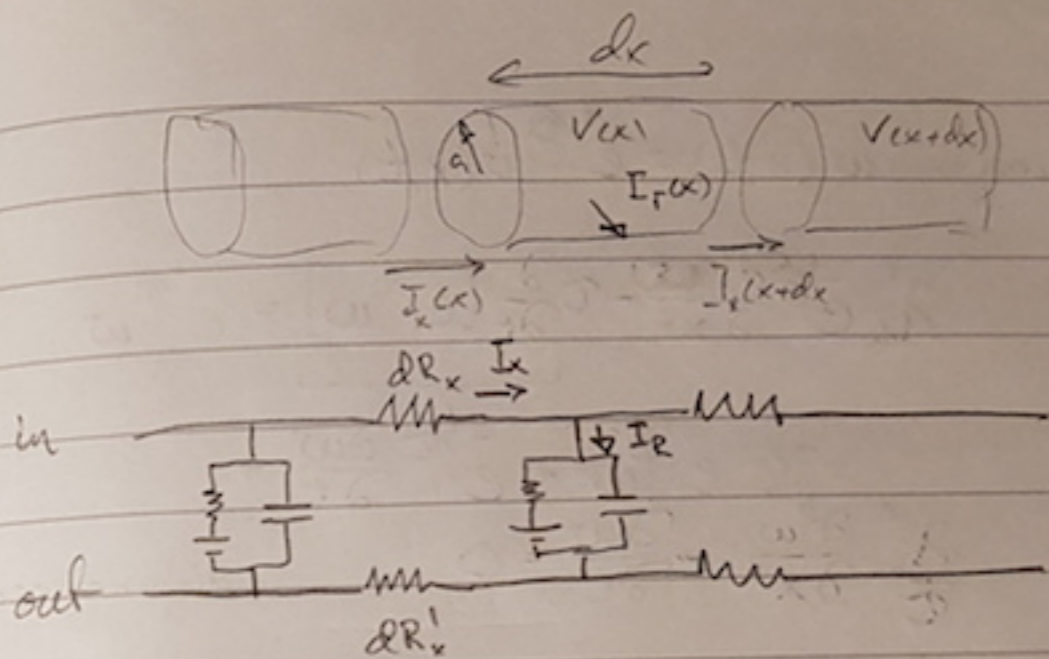 dx
a V(x) V(x+dx)
I_r(x)
I_x(x) I_x(x+dx
dR_x I_x
in I_R
out
dR_x'